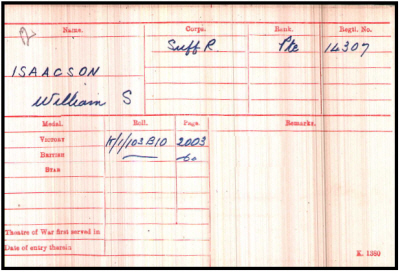 Name. Corps. Rank. Regtl. No.
Suff R. Pte 14307
ISAACSON
William S
Medal. Roll. Page. Remarks.
Victory K/1/103B10 2003
British do
Star
Theatre of War first served in
Date of entry therein
K. 1380